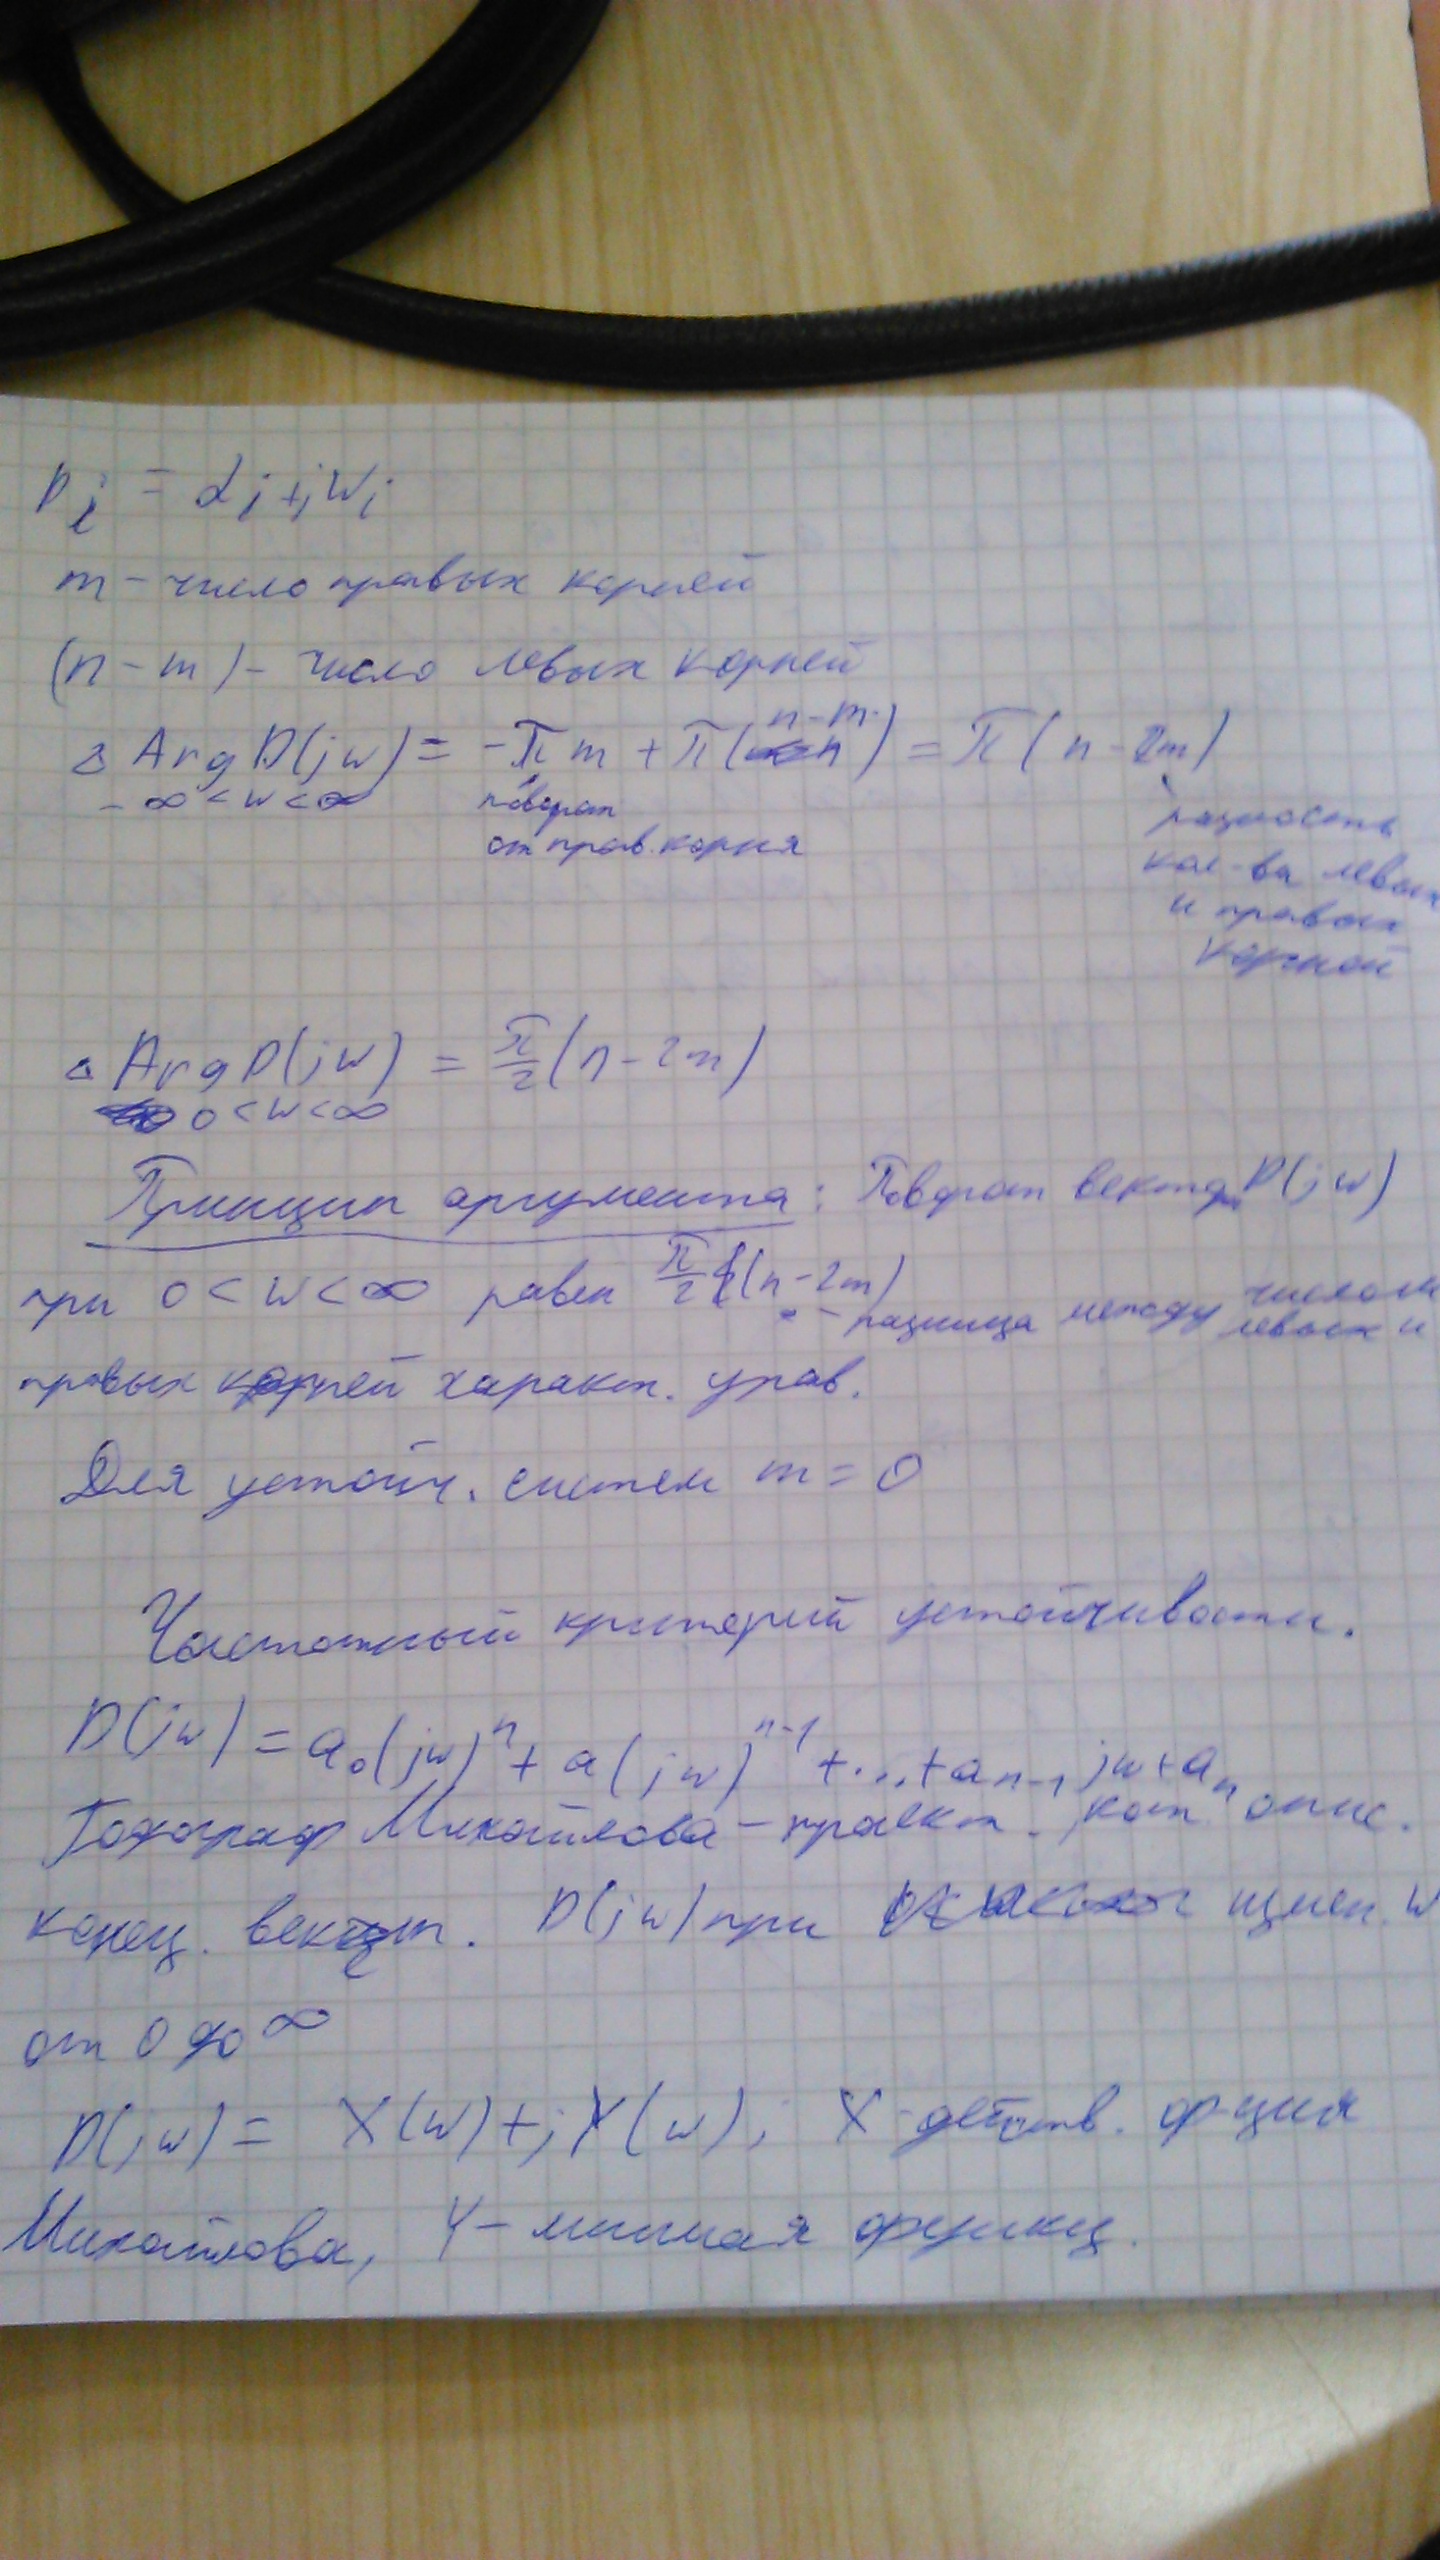 p_i = α_i + jw_i
m - число правых корней
(n - m) - число левых корней
Δ Arg D(jw) = -π m + π(n-m) = π(n - 2m)
-∞ < w < ∞
поворот
от прав. корня
разность
кол-ва левых
и правых
корней
Δ Arg D(jw) = π/2 (n - 2m)
0 < w < ∞
Принцип аргумента: Поворот вектора D(jw)
при 0 < w < ∞ равен π/2 (n - 2m) - разница между числом левых и
правых корней характ. урав.
Для устойч. систем m = 0
Частотный критерий устойчивости.
D(jw) = a₀(jw)ⁿ + a(jw)ⁿ⁻¹ + ... + aₙ₋₁ jw + aₙ
Годограф Михайлова - траект. кот. опис.
конец. вект. D(jw) при измен. w
от 0 до ∞
D(jw) = X(w) + jY(w); X - действ. ф-ция
Михайлова, Y - мнимая функц.